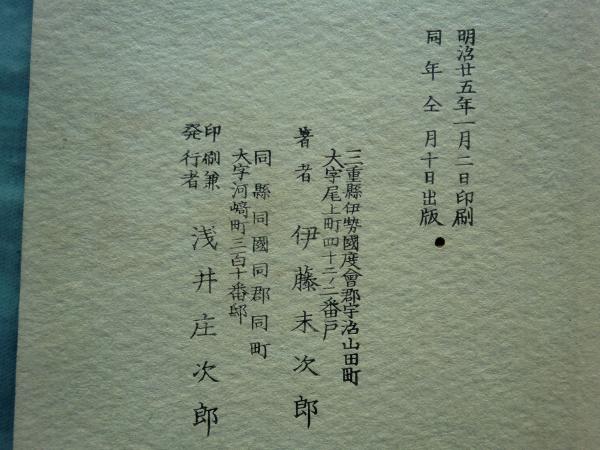 明治廿五年一月二日印刷
同年仝月十日出版
三重縣伊勢國度會郡宇治山田町
大字尾上町四十二ノ二番戸
著者 伊藤末次郎
同縣同國同郡同町
大字河﨑町三百十番邸
印刷兼
発行者 浅井庄次郎